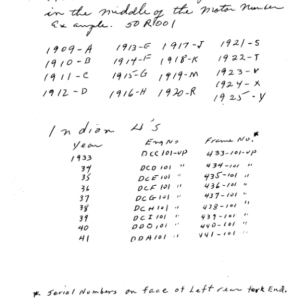 in the middle of the Motor Number
Example. 50R1001
1909-A 1913-E 1917-J 1921-S
1910-B 1914-F 1918-K 1922-T
1911-C 1915-G 1919-M 1923-V
1912-D 1916-H 1920-R 1924-X
1925-Y
Indian 4's
Year Eng No Frame No. *
1933 DCC101-up 433-101-up
34 DCD101 " 434-101 "
35 DCE101 " 435-101 "
36 DCF101 " 436-101 "
37 DCG101 " 437-101 "
38 DCH101 " 438-101 "
39 DCI101 " 439-101 "
40 DDO101 " 440-101 "
41 DDA101 " 441-101 "
* Serial Numbers on face of Left rear fork End.